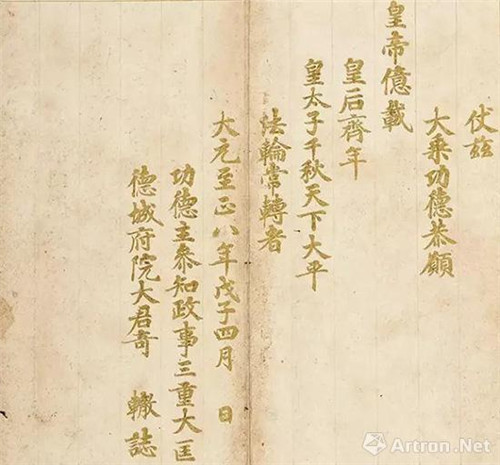 仗茲
大乘功德恭願
皇帝億載
皇后齊年
皇太子千秋天下大平
法輪常轉者
大元至正八年戊子四月 日
功德主叅知政事三重大匡
德城府院大君奇 轍誌
Artron.Net